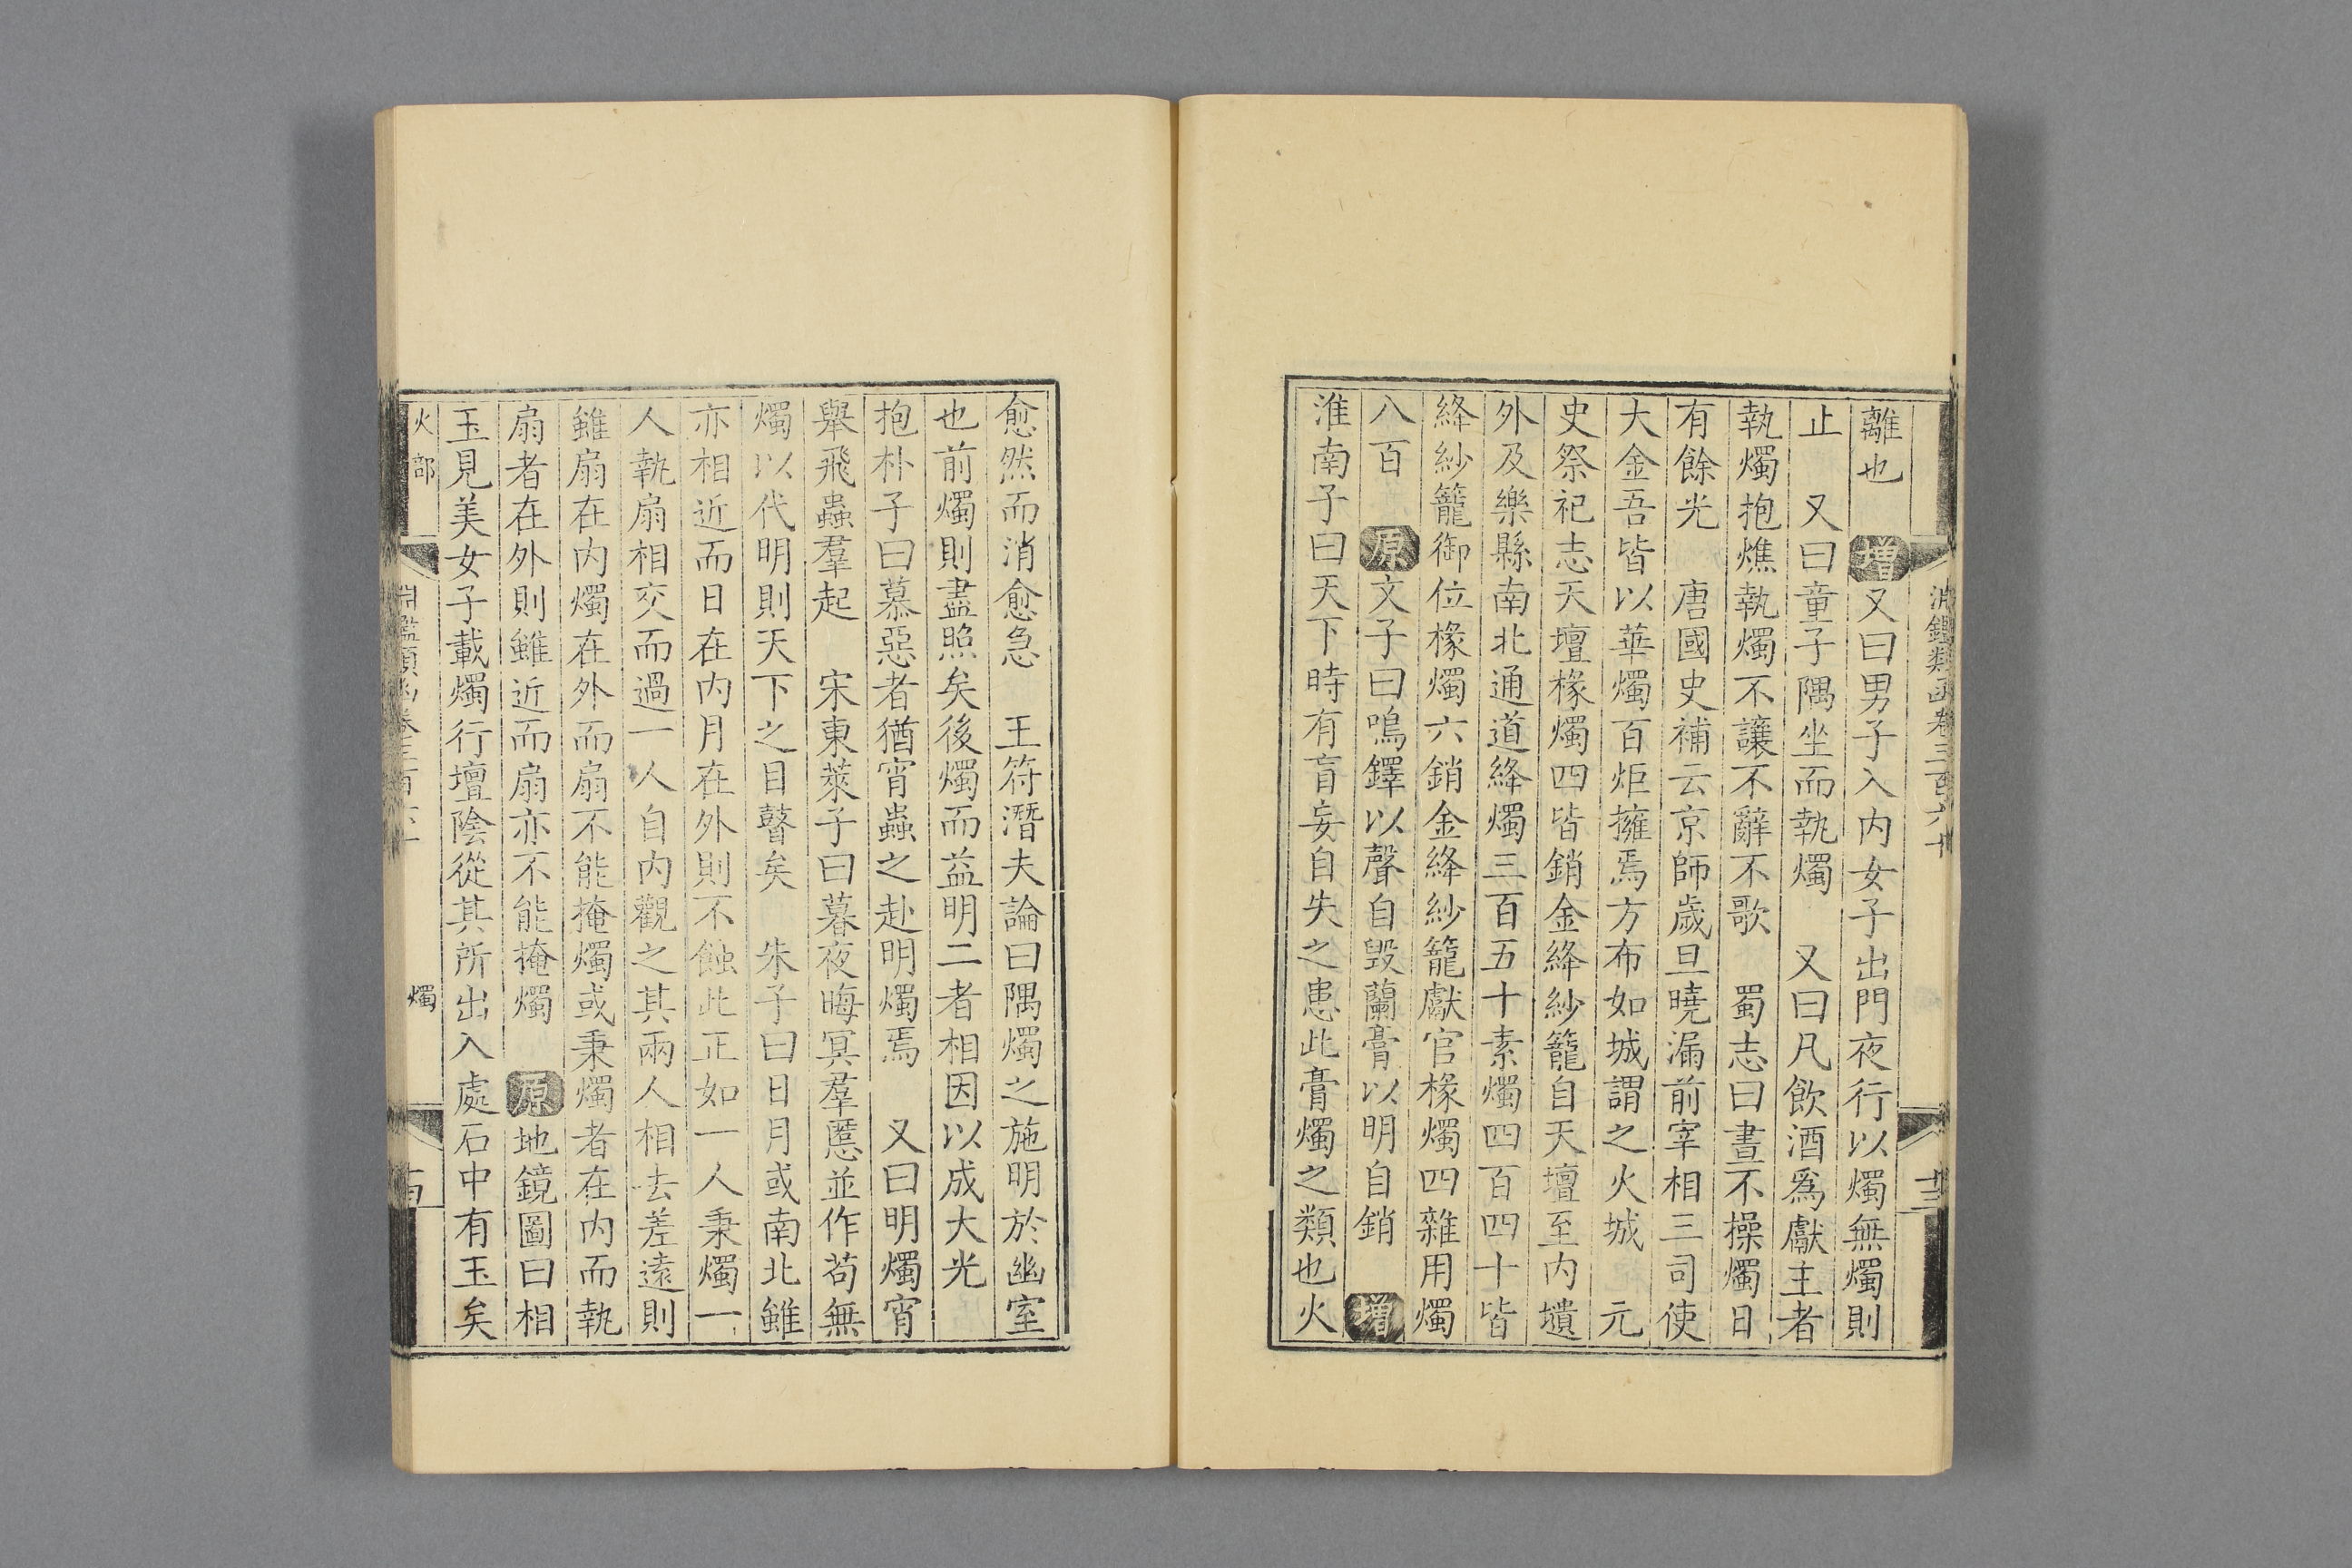 離也　增又曰男子入内女子出門夜行以燭無燭則
止　又曰童子隅坐而執燭　又曰凡飲酒爲獻主者
執燭抱燋執燭不讓不辭不歌　蜀志曰晝不操燭日
有餘光　唐國史補云京師歲旦曉漏前宰相三司使
大金吾皆以華燭百炬擁焉方布如城謂之火城　元
史祭祀志天壇椽燭四皆銷金絳紗籠自天壇至内壝
外及樂縣南北通道絳燭三百五十素燭四百四十皆
絳紗籠御位椽燭六銷金絳紗籠獻官椽燭四雜用燭
八百　原文子曰鳴鐸以聲自毀蘭膏以明自銷　增
淮南子曰天下時有盲妄自失之患此膏燭之類也火
愈然而消愈急　王符潛夫論曰隅燭之施明於幽室
也前燭則盡照矣後燭而益明二者相因以成大光
抱朴子曰慕惡者猶宵蟲之赴明燭焉　又曰明燭宵
舉飛蟲羣起　宋東萊子曰暮夜晦冥羣慝並作苟無
燭以代明則天下之目瞽矣　朱子曰日月或南北雖
亦相近而日在内月在外則不蝕此正如一人秉燭一
人執扇相交而過一人自内觀之其兩人相去差遠則
雖扇在内燭在外而扇不能掩燭或秉燭者在内而執
扇者在外則雖近而扇亦不能掩燭　原地鏡圖曰相
玉見美女子載燭行壇陰從其所出入處石中有玉矣
火部
燭